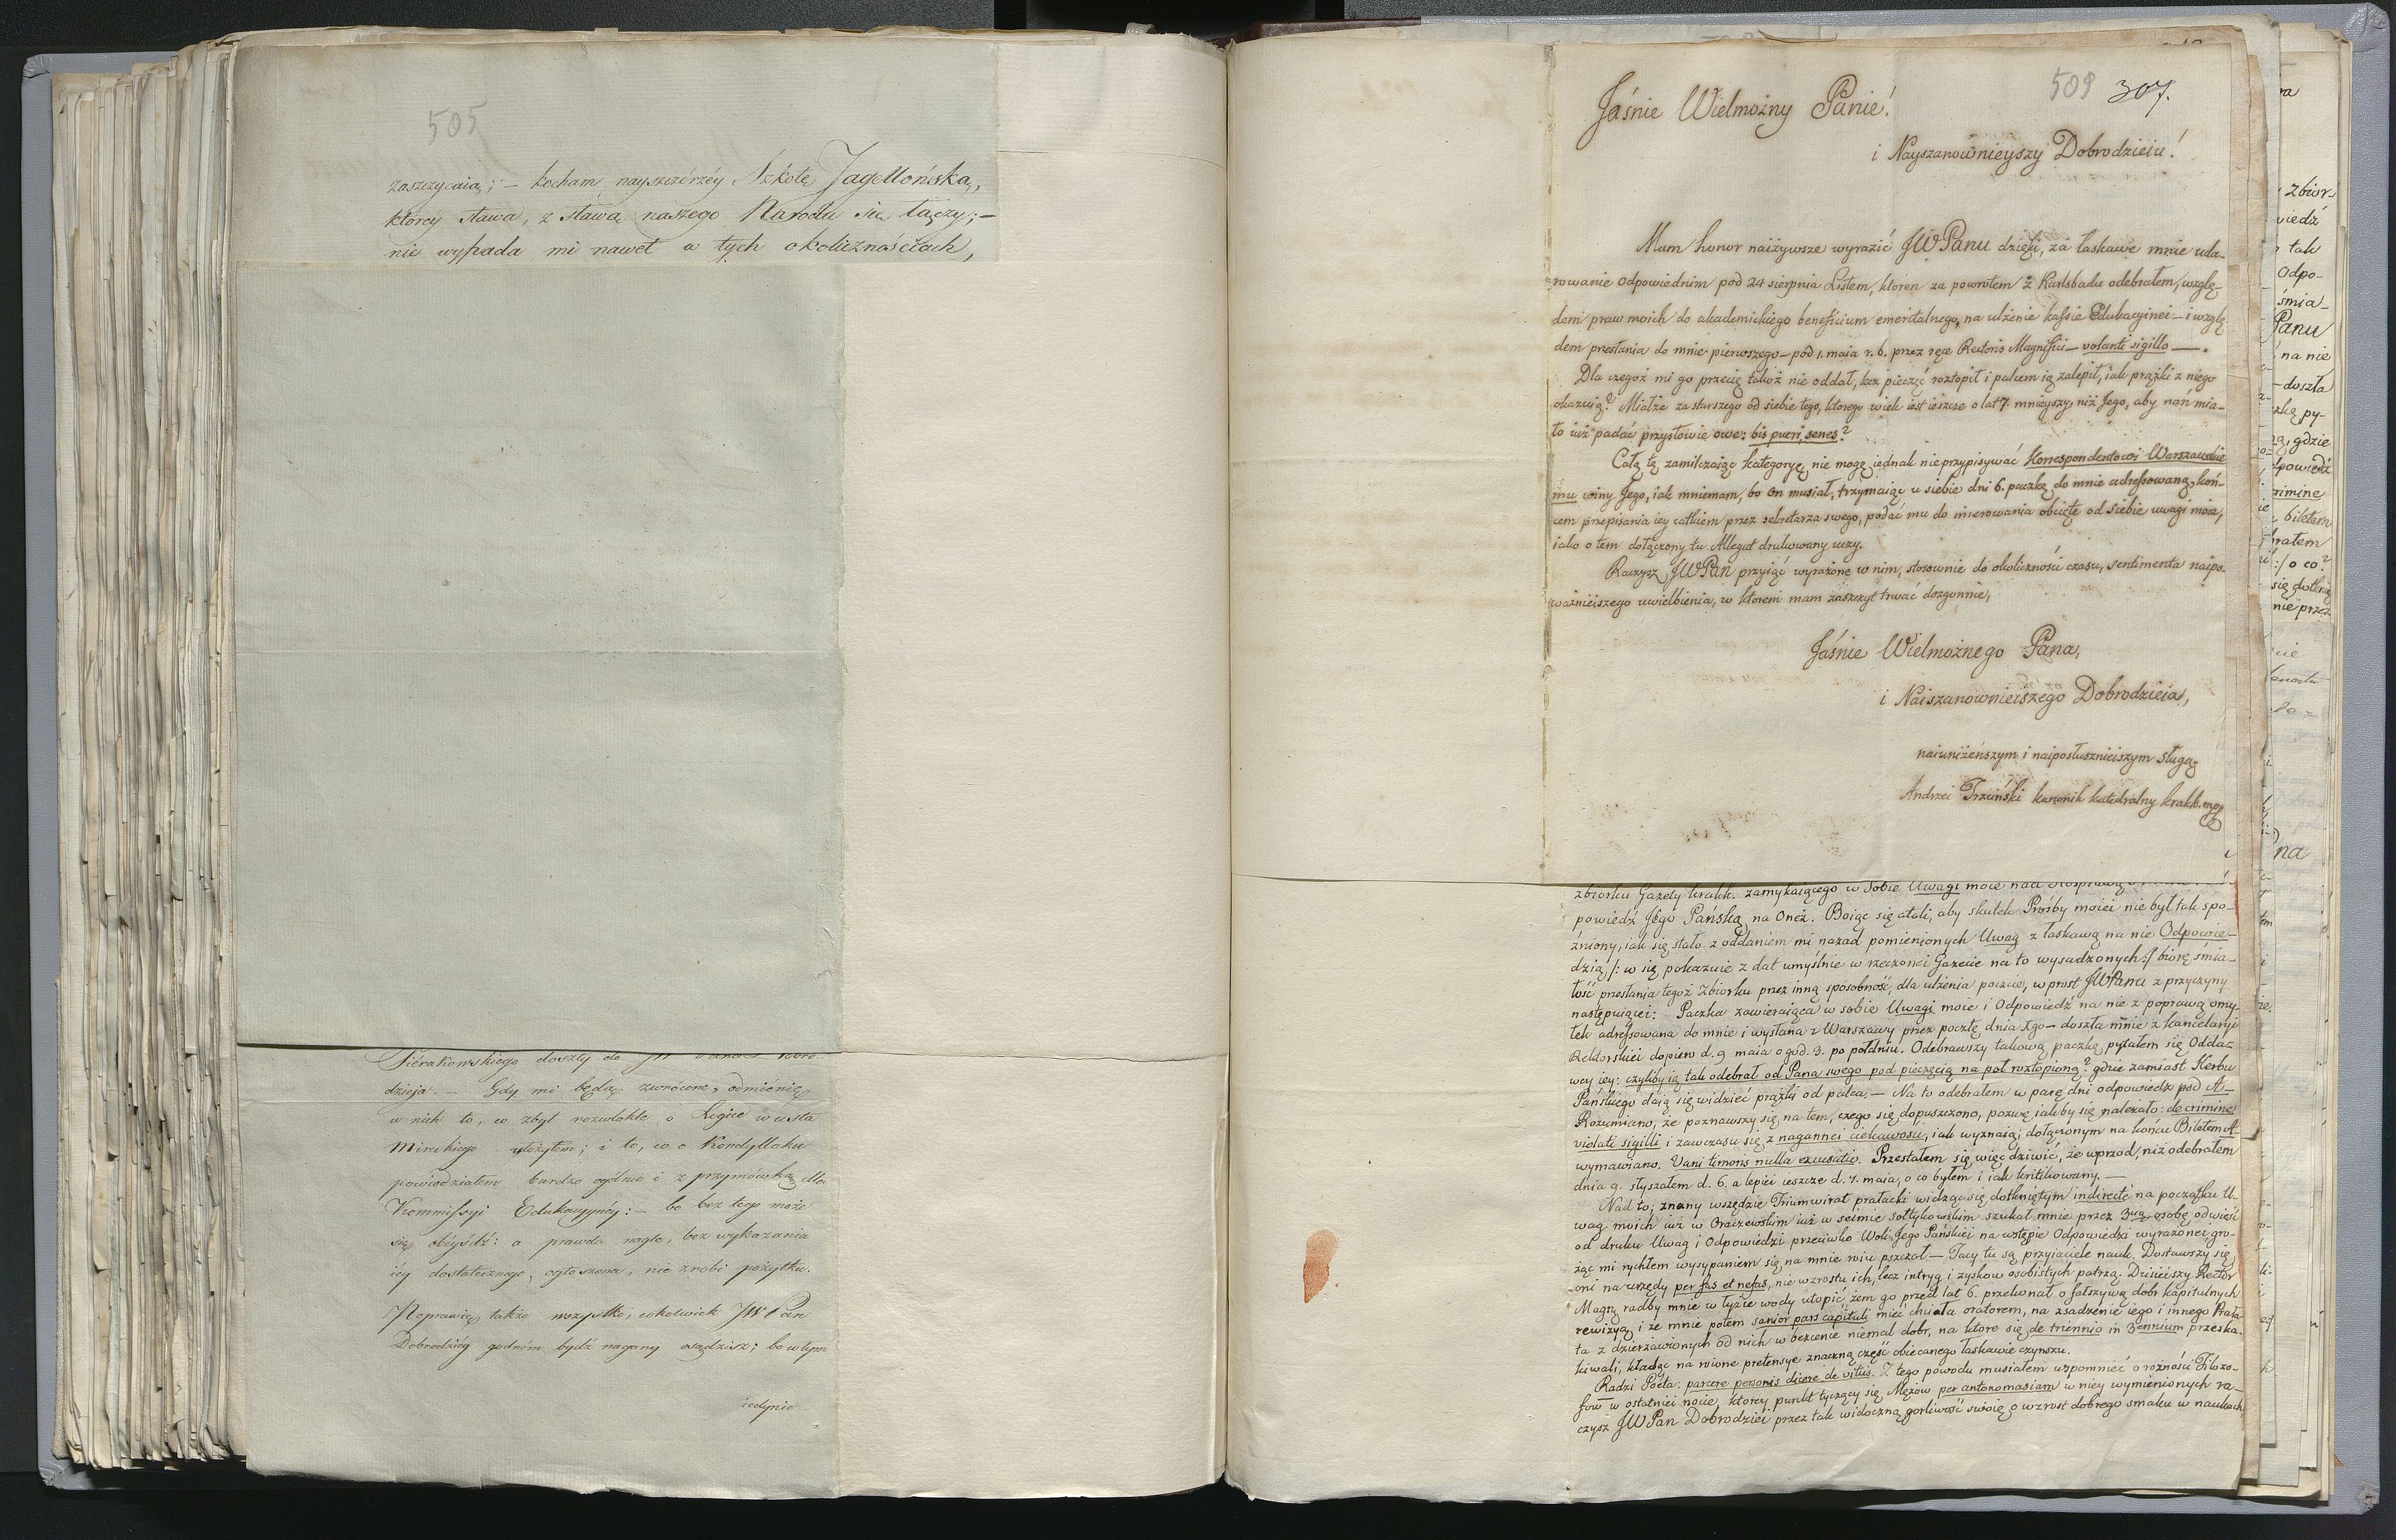 505
zaszczycaią; – kocham nayszczérzéy Szkołę Jagellońską,
którey sława, z sławą naszego Narodu się łączy; –
nie wypada mi nawet w tych okolicznościach,
Siérakowskiego doszły do
dzieja. – Gdy mi będą zwrócone, odmienię
w nich to, co zbyt rozwlokle o Logice w usta
Mireckiego włożyłem; i to, co o Kondyllaku
powiedziałem bardzo ogólnie i z przymówką dla
Kommissyi Edukacyynéy: – bo bez tego może
się obéyśdź: a prawda nagło, bez wykazania
iéy dostatecznego, ogłoszona, nie zrobi pożytku.
Poprawię także wszystko, cokolwiek JW Pan
Dobrodziéy godném bydź nagany osądzisz; bo w tym
iedynie
509 307.
Jaśnie Wielmożny Panie!
i Nayszanownieyszy Dobrodzieiu!
Mam honor naiżywsze wyrazić JWPanu dzięki, za łaskawe mnie uda-
rowanie odpowiednim pod 24 sierpnia Listem, ktoren za powrotem z Karlsbadu odebrałem, wzglę-
dem praw moich do akademickiego beneficium emeritalnego, na ulżenie kassie Edukacyinei – i wzglę
dem przesłania do mnie pierwszego – pod 1. maia r. b. przez ręce Rectoris Magnifici – volanti sigillo –.
Dla czegoż mi go przecię takoż nie oddał, lecz pieczęć roztopił i palcem ią zalepił, iak prążki z niego
okazuią? Miałże za starszego od siebie tego, ktorego wiek iest ieszcze o lat 7. mnieyszy, niż Jego, aby nań mia-
ło iuż padać przysłowie owe: bis pueri, senes?
Całą tę zamilczaiąc kategoryę, nie mogę iednak nieprzypisywać Korrespondentowi Warszawskie
mu winy Jego, iak mniemam, bo on musiał, trzymaiąc u siebie dni 6. paczkę do mnie adressowaną, koń-
cem przepisania iey całkiem przez sekretarza swego, podać mu do inserowania obcięte od siebie uwagi moie,
iako o tem dołączony tu Allegat drukowany uczy.
Raczysz JWPan przyiąć wyrażone w nim, stosownie do okoliczności czasu, sentimenta naipo-
ważnieiszego uwielbienia, w ktorem mam zaszczyt trwać dozgonnie,
Jaśnie Wielmożnego Pana,
i Naiszanownieiszego Dobrodzieia,
naiuniżeńszym i naiposłusznieiszym sługą
Andrzei Trzciński kanonik katedralny krakk. mp
zbiorku Gazety krakk. zamykaiącego w sobie Uwagi moie nad
powiedź Jego Pańską na Oneż. Boiąc się atoli, aby skutek Prośby moiei nie był tak spo-
źniony, iak się stało z oddaniem mi nazad pomienionych Uwag z łaskawą na nie Odpowie-
dzią /: w się pokazuie z dat umyślnie w rzeczonei Gazecie na to wysadzonych :/ biorę śmia-
łość przesłania tegoż Zbiorku przez inną sposobność, dla ulżenia poczcie, w prost JWPanu z przyczyny
następuiącei: Paczka zawieraiąca w sobie Uwagi moie i Odpowiedź na nie z poprawą omy-
łek adressowana do mnie i wysłana z Warszawy przez pocztę dnia 1go – doszła mnie z kancelaryi
Rektorskiei dopiero d. 9 maia o god. 3. po połdniu. Odebrawszy takową paczkę, pytałem się Oddaz
wcy iey: czyliby ią tak odebrał od Pana swego pod pieczęcią na poł roztopioną? gdzie zamiast Herbu
Pańskiego daią się widzieć prążki od palca. – Na to odebrałem w parę dni odpowiedź pod A –
Rozumiano, że poznawszy się na tem, czego się dopuszczono, pozwę, iakby się należało: de crimine
violati sigilli i zawczasu się z nagannei ciekawości, iak wyznaią, dołączonym na końcu Biletem A
wymawiano. Vani timoris nulla excusatio. Przestałem się więc dziwić, że wprzod, niż odebrałem
dnia 9. słyszałem d. 6. a lepiei ieszcze d. 7. maia, o co byłem i iak kritikowany. –
Nad to, znany wszędzie Triumwirat prałacki widząc się dotkniętym indirecté na początku U-
wag moich iuż w Oraczewskim iuż w seimie Sołtykowskim szukał mnie przez 3cią osobę odwieść
od druku Uwag i Odpowiedzi przeciwko Woli Jego Pańskiei na wstępie Odpowiedzi wyrażonei gro-
żąc mi rychłem wysypaniem się na mnie roiu pszczoł. – Tacy tu są przyiaciele nauk. Dostawszy się
oni na urzędy per fas et nefas, nie wzrostu ich, lecz intryg i zyskow osobistych patrzą. Dzisieiszy Rector
Magn. radby mnie w łyżce wody utopić, żem go przed lat 6. przekonał o fałszywą dobr kapitulnych
rewizyą, i że mnie potem sanior pars capituli mieć chciała oratorem, na zsadzenie iego i innego Prała-
ta z dzierżawionych od nich w bezcenie niemal dobr, na ktore się de triennio in 3ennium przeska-
kiwali, kładąc na rowne pretensye znaczną część obiecanego łaskawie czynszu.
Radzi Poeta: parcere personis dicere de vitiis. Z tego powodu musiałem wspomnieć o rożności Filozo-
fow w ostatniei nocie, ktorey punkt tyczący się Mężow per antonomasiam w niey wymienionych ra-
czysz JWPan Dobrodziei przez tak widoczną gorliwość swoię o wzrost dobrego smaku w naukach,